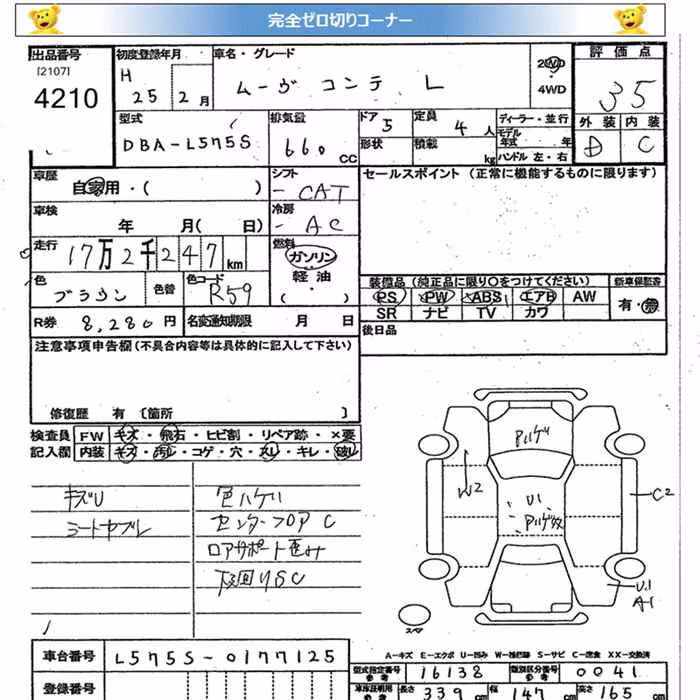 完全ゼロ切りコーナー
出品番号 初度登録年月 車名・グレード 評価点
[2107] H 2WD
4210 25年2月 ムーヴ コンテ L 4WD 35
型式 排気量 ドア 定員 ディーラー・並行 外装 内装
DBA-L575S 660 CC 5 4人 モデル年式 年 D C
形状 積載 kg ハンドル 左・右
車歴 シフト セールスポイント (正常に機能するものに限ります)
自家用・( ) CAT
車検 冷房
年 月( 日) AC
走行 燃料
17万2千247km ガソリン
軽油
色 色替 色コード ・( )
ブラウン R59
装備品 (純正品に限り○をつけてください) 新車保証書
PS PW ABS エアB AW 有・無
SR ナビ TV カワ
R券 8,280円 名変通知期限 月 日
後日品
注意事項申告欄(不具合内容等は具体的に記入して下さい)
修復歴 有 [箇所 ]
検査員 FW キズ・飛石・ヒビ割・リペア跡・×要
記入欄 内装 キズ・汚レ・コゲ・穴・スレ・キレ・破レ
キズU 色ハゲリ
シートヤブレ センターフロアC
ロアサポート歪み
下回りSC
Aハゲ
W2
U1
Aハゲ
C2
U1
A1
スペア
A-キズ E-エクボ U-凹み W-補修跡 S-サビ C-腐食 XX-交換済
車台番号 L575S-0177125 型式指定番号 参考 16138 類別区分番号 参考 0041
登録番号 車庫証明用 参考 長さ 339cm 幅 147cm 高さ 163cm